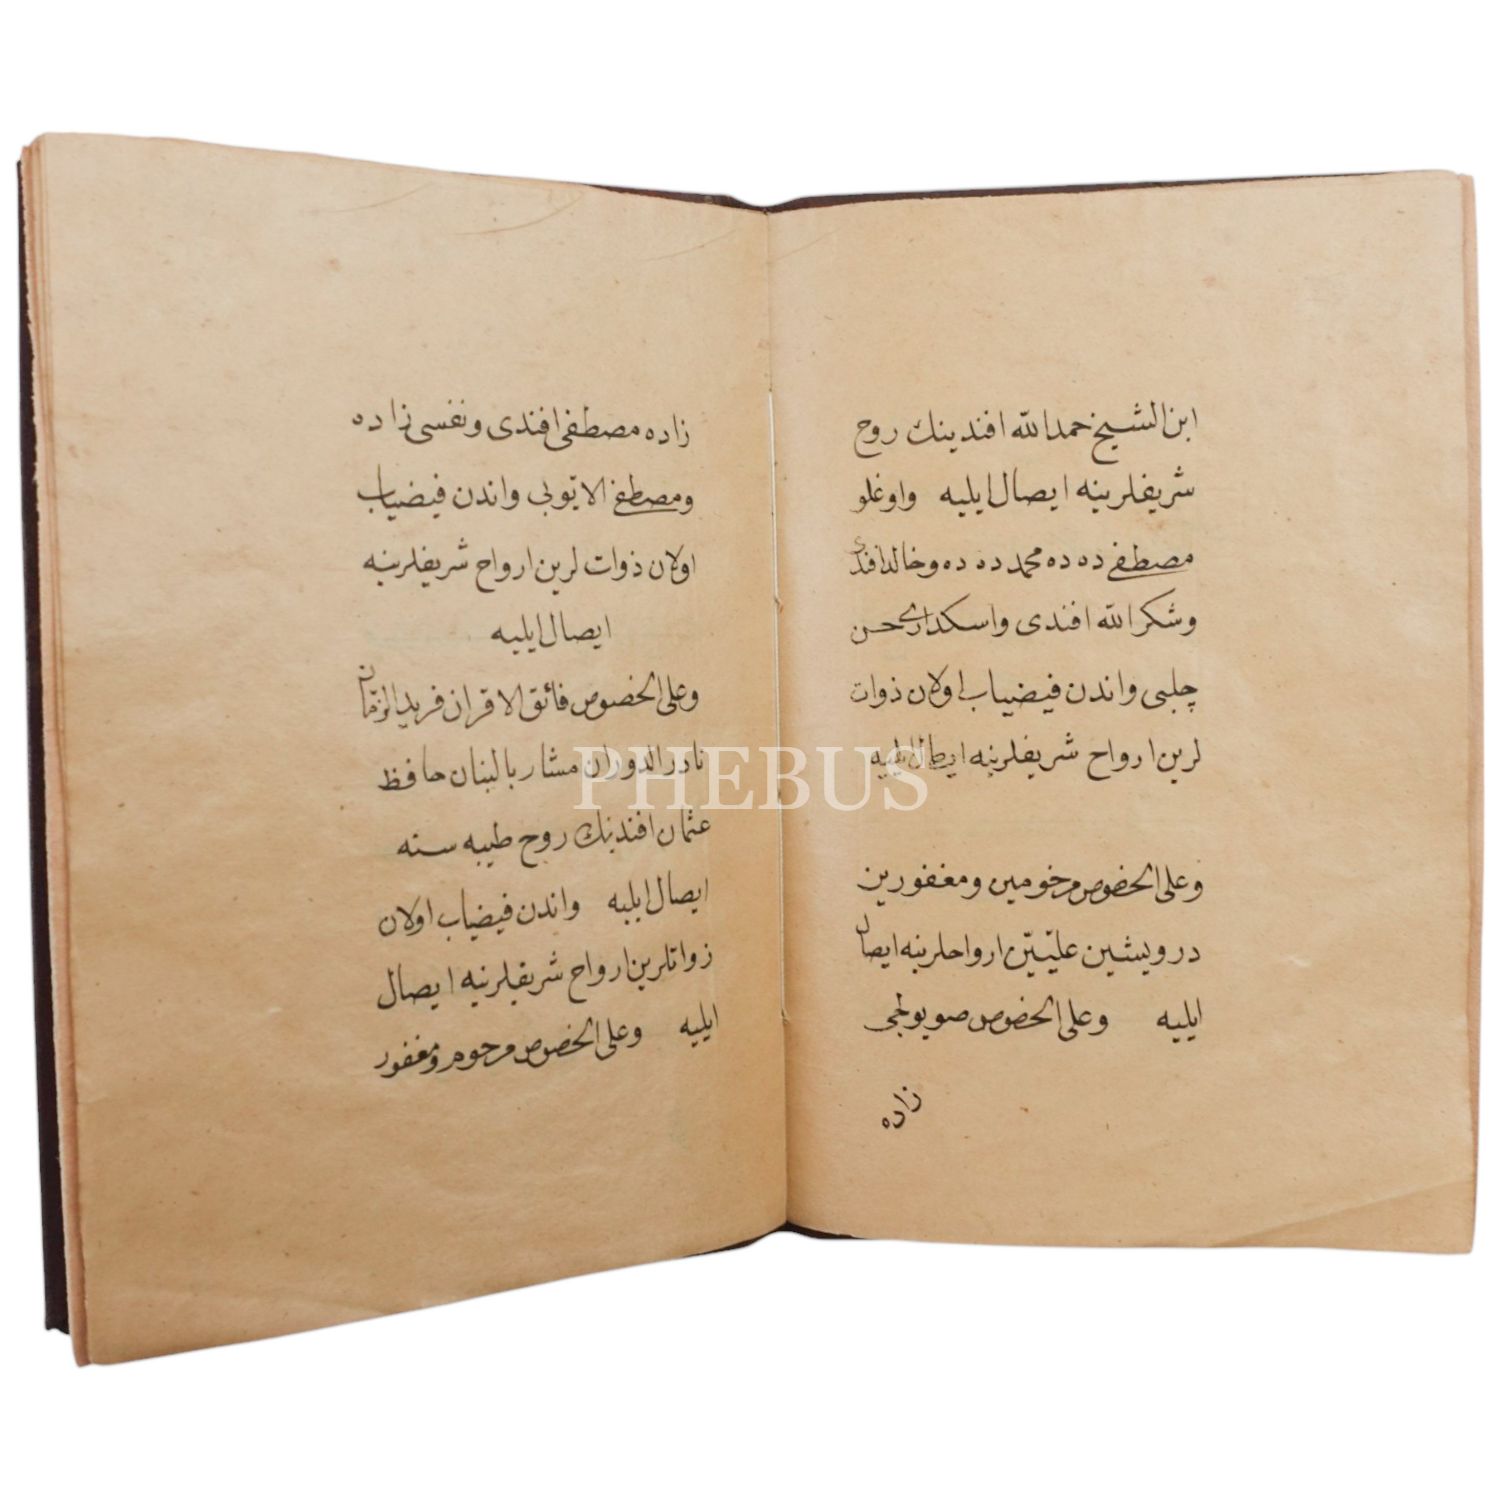 ابن الشيخ حمد الله افندينك روح
شريفلرينه ايصال ايليه واوغلو
مصطفى ده ده محمد ده ده وخالد افندى
وشكر الله افندى واسكدارى حسن
چلبى واندن فيضياب اولان ذوات
لرين ارواح شريفلرينه ايصال ايليه
وعلى الخصوص مرحومين ومغفورين
درويشين عليّين ارواحلرينه ايصال
ايليه وعلى الخصوص صويولجى
زاده
زاده مصطفى افندى ونفسى زاده
ومصطفى الايوبى واندن فيضياب
اولان ذوات لرين ارواح شريفلرينه
ايصال ايليه
وعلى الخصوص فائق الاقران فريد الزمان
نادر الدوران مشار بالبنان حافظ
عثمان افندينك روح طيبه سنه
ايصال ايليه واندن فيضياب اولان
زواتلرين ارواح شريفلرينه ايصال
ايليه وعلى الخصوص مرحوم ومغفور
PHEBUS